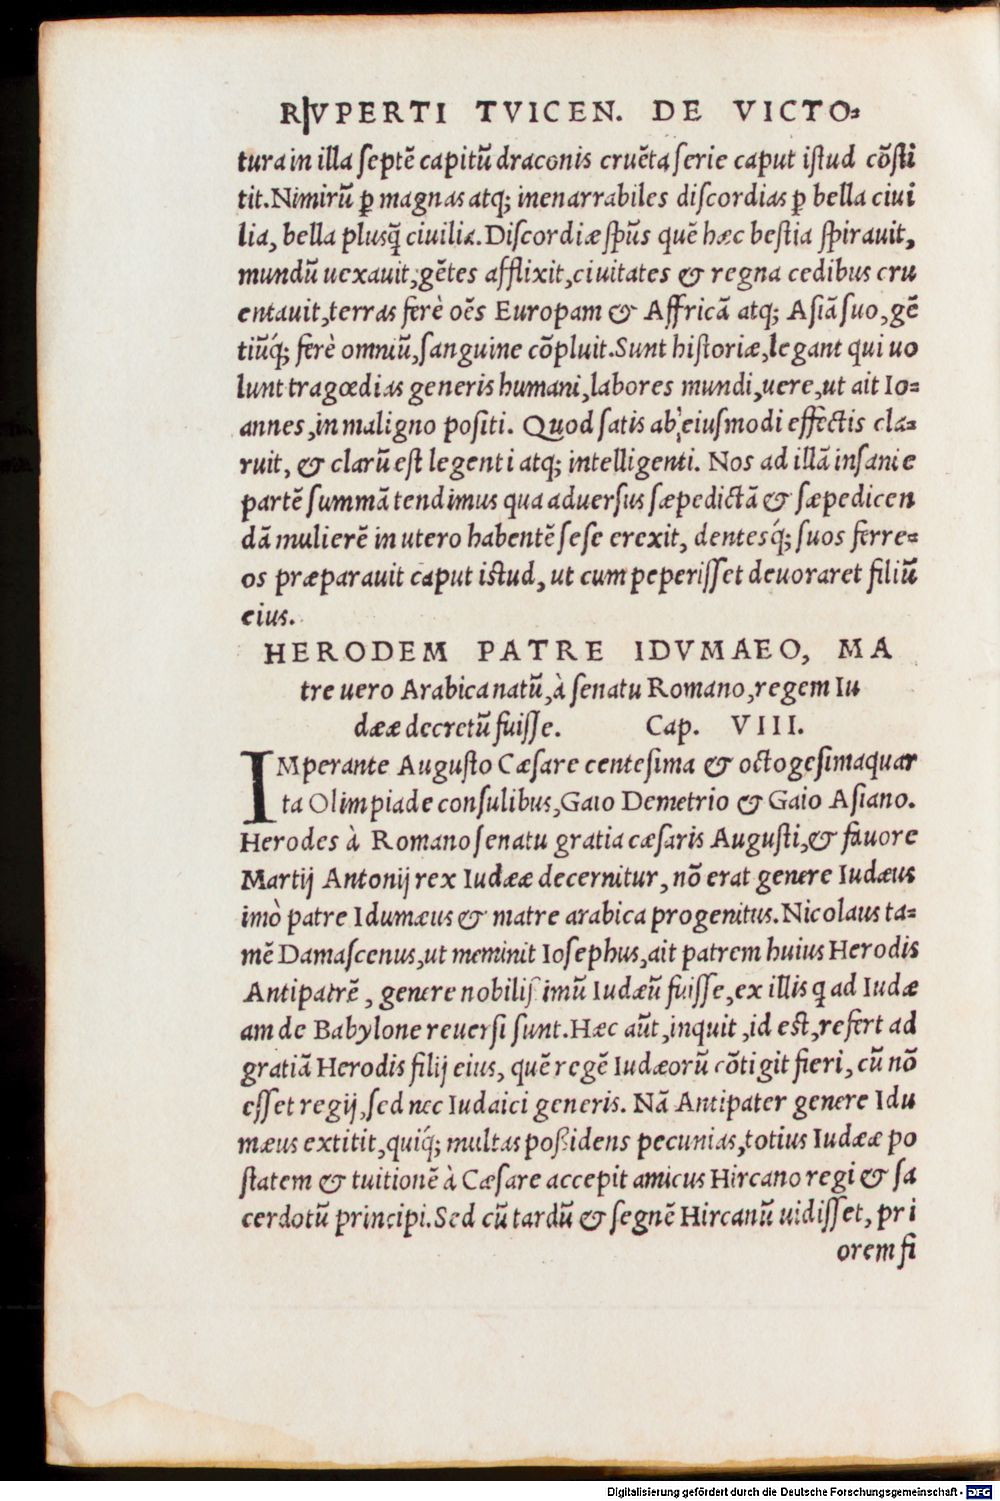 RVPERTI TVICEN. DE VICTO⸗
tura in illa septē capitū draconis cruēta serie caput istud cōsti
tit. Nimirū ꝑ magnas atq; inenarrabiles discordias ꝑ bella ciui
lia, bella plusq̃ ciuilia. Discordiæ sp̃us quē hæc bestia spirauit,
mundū uexauit, gētes afflixit, ciuitates & regna cedibus cru
entauit, terras ferè oēs Europam & Affricā atq; Asiā suo, gē
tiūq́; ferè omniū, sanguine cōpluit. Sunt historiæ, legant qui uo
lunt tragœdias generis humani, labores mundi, uere, ut ait Io⸗
annes, in maligno positi. Quod satis ab eiusmodi effectis cla⸗
ruit, & clarū est legenti atq; intelligenti. Nos ad illā insanie
partē summā tendimus qua aduersus sæpedictā & sæpedicen
dā mulierē in utero habentē sese erexit, dentesq́; suos ferre⸗
os præparauit caput istud, ut cum peperisset deuoraret filiū
eius.
HERODEM PATRE IDVMAEO, MA
tre uero Arabica natū, à senatu Romano, regem Iu
dææ decretū fuisse. Cap. VIII.
IMperante Augusto Cæsare centesima & octogesimaquar
ta Olimpiade consulibus, Gaio Demetrio & Gaio Asiano.
Herodes à Romano senatu gratia cæsaris Augusti, & fauore
Martij Antonij rex Iudææ decernitur, nō erat genere Iudæus
imò patre Idumæus & matre arabica progenitus. Nicolaus ta⸗
mē Damascenus, ut meminit Iosephus, ait patrem huius Herodis
Antipatrē, genere nobilissimū Iudæū fuisse, ex illis q ad Iudæ
am de Babylone reuersi sunt. Hæc aūt, inquit, id est, refert ad
gratiā Herodis filij eius, quē regē Iudæorū cōtigit fieri, cū nō
esset regij, sed nec Iudaici generis. Nā Antipater genere Idu
mæus extitit, quiq́; multas poßidens pecunias, totius Iudææ po
statem & tuitionē à Cæsare accepit amicus Hircano regi & sa
cerdotū principi. Sed cū tardū & segnē Hircanū uidisset, pri
orem fi
Digitalisierung gefördert durch die Deutsche Forschungsgemeinschaft - DFG